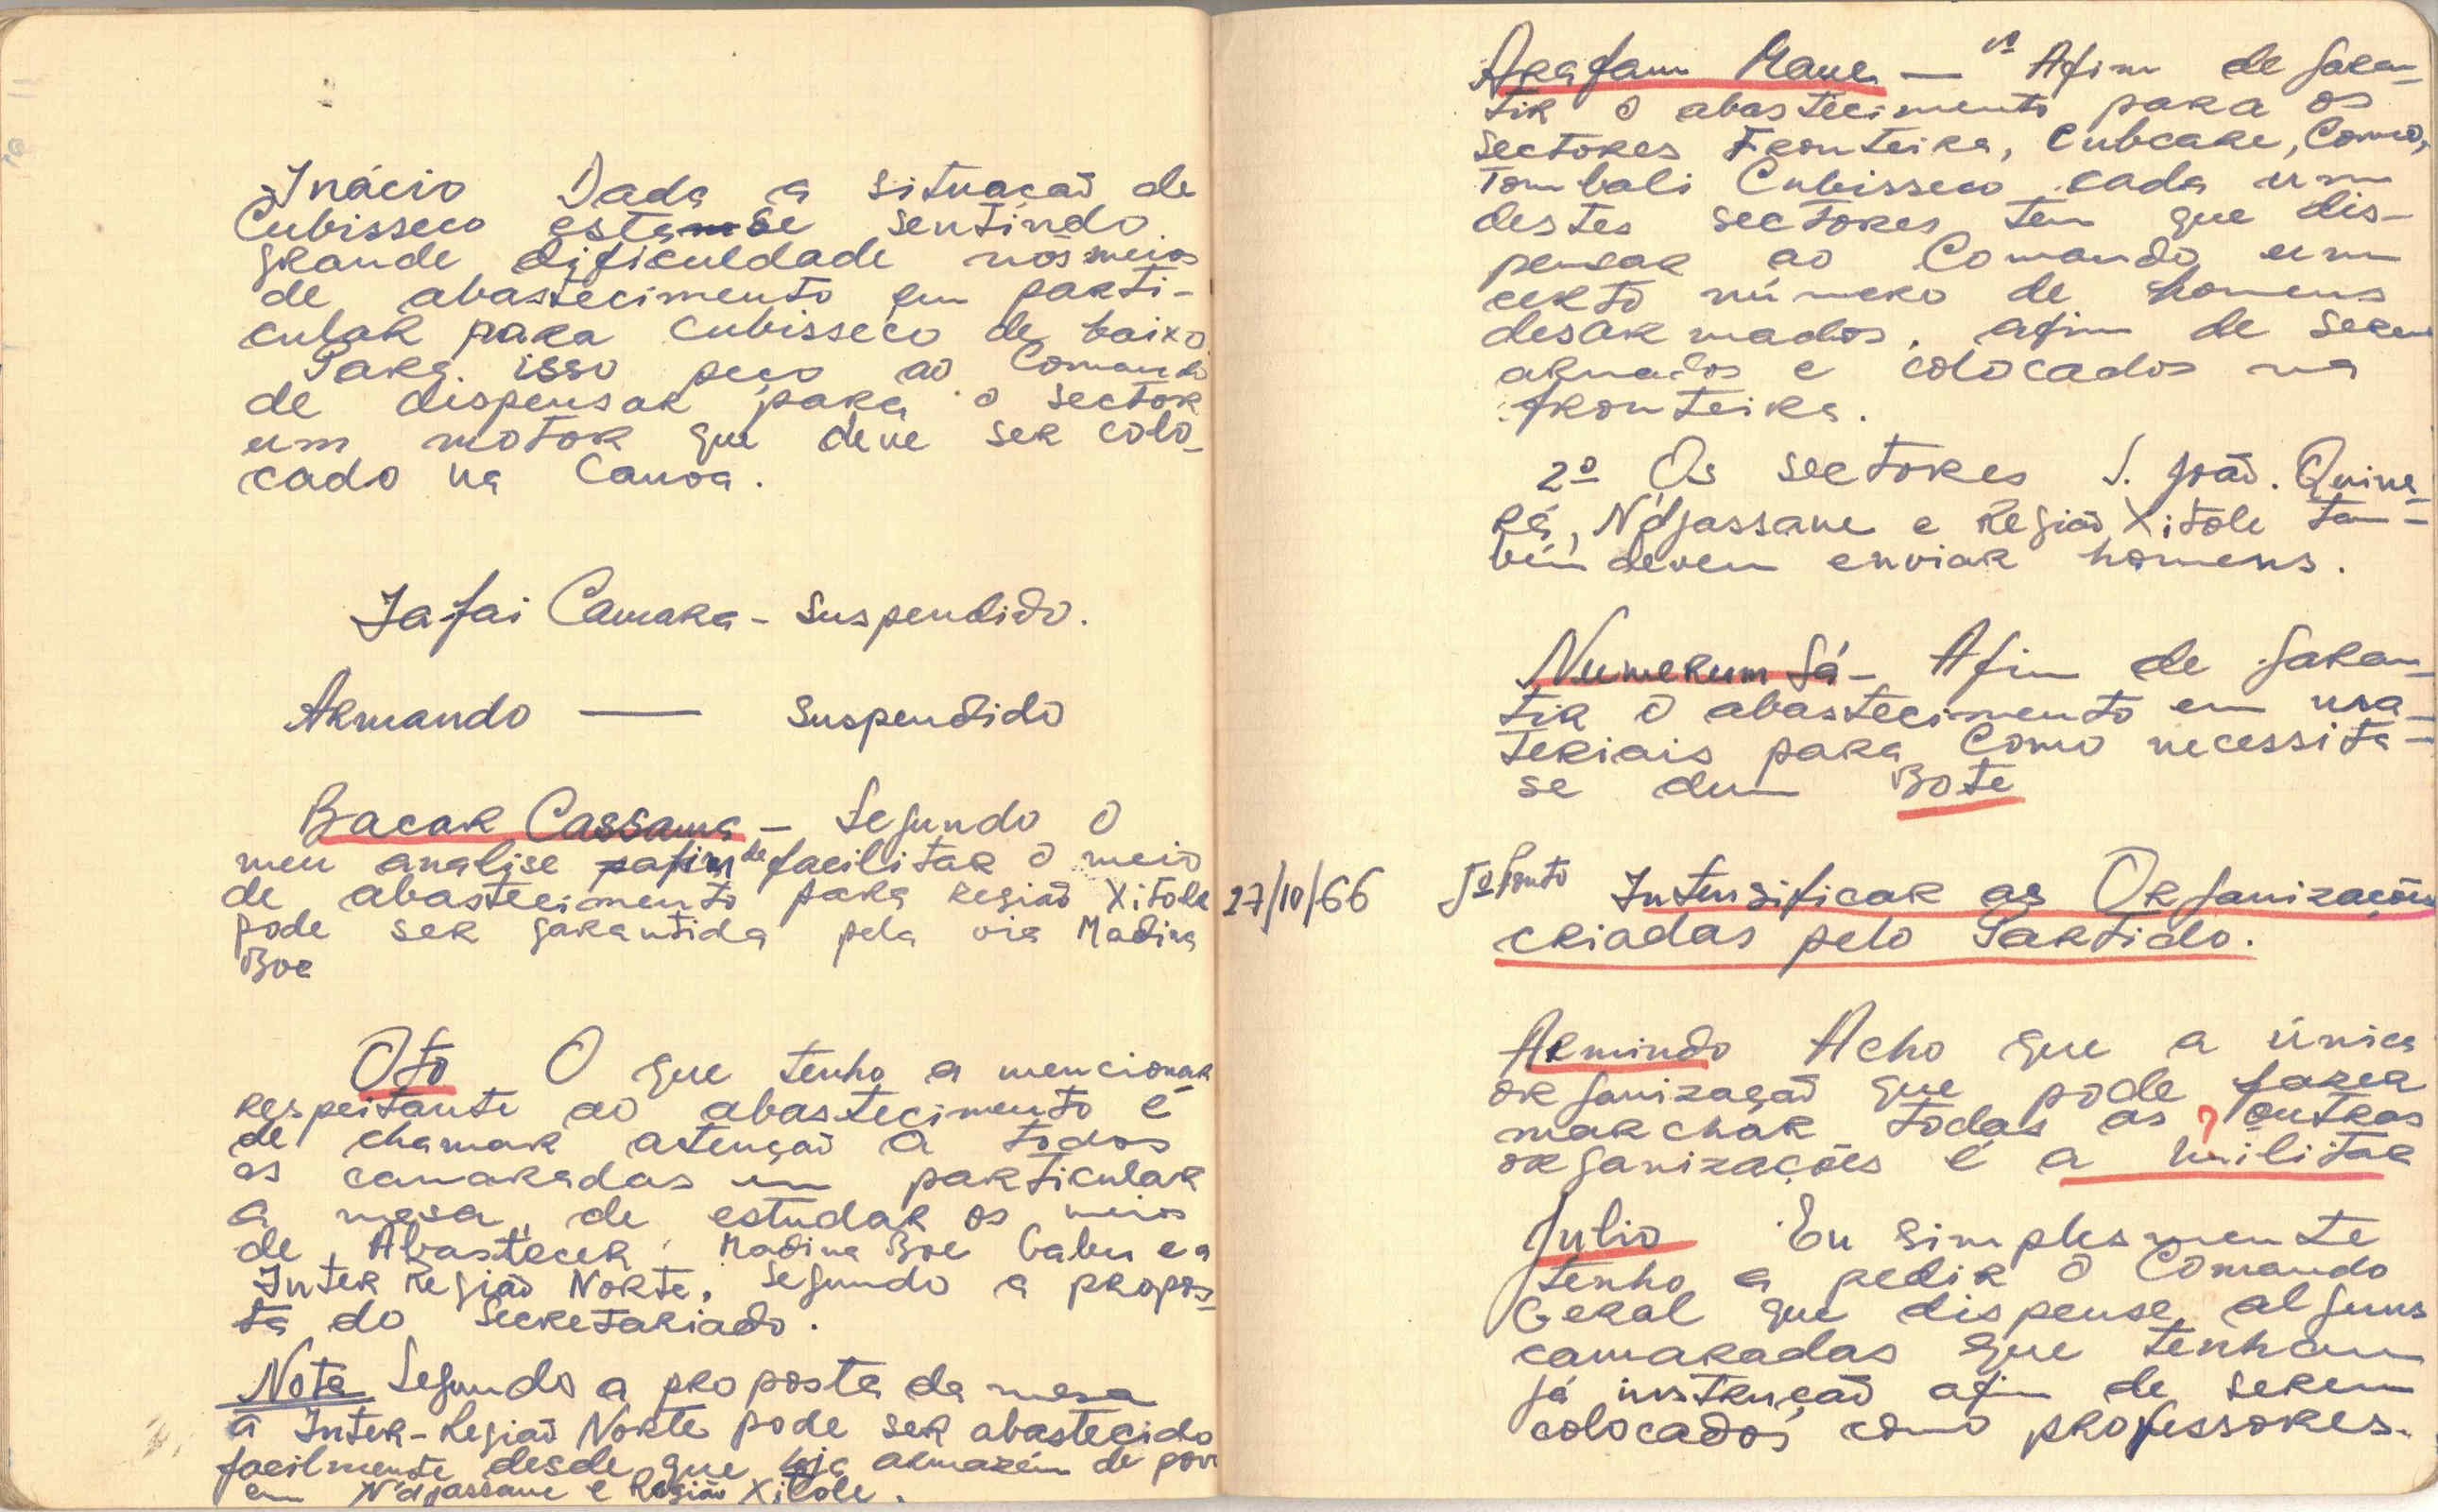 Inácio Dada a situação de
Cubisseco estamse sentindo
grande dificuldade nos meios
de abastecimento em parti-
cular para Cubisseco de baixo
Para isso peço ao Comando
de dispensar para o sector
um motor que deve ser colo-
cado na Canoa.
Jafai Camara - Suspendido.
Armando — Suspendido
Bacar Cassama - Segundo o
meu analise afim de facilitar o meio
de abastecimento para Região Xitole
pode ser garantida pela via Madina
Boe
Oto O que tenho a mencionar
respeitante ao abastecimento é
de chamar atenção a todos
os camaradas em particular
a mesa, de estudar os meios
de Abastecer Madina Boe Gabu e a
Inter Região Norte, segundo a propos-
ta do Secretariado.
Nota Segundo a proposta da mesa
a Inter-Região Norte pode ser abastecido
facilmente desde que haja armazém de
em N'djassane e Região Xitole.
Arafam Mane — Afim de garan-
tir o abastecimento para os
sectores Fronteira, Cubcare, Como,
Tombali Cubisseco cada um
destes sectores tem que dis-
pensar ao Comando um
certo número de homens
desarmados, afim de serem
armados e colocados na
fronteira.
2º Os sectores S. João. Quina-
rá, N'djassane e Região Xitole tam-
bém devem enviar homens.
Numerum Sá - Afim de garan-
tir o abastecimento em ma-
teriais para Como necessita-
se dum Bote
27/10/66 5º Ponto Intensificar as Organizações
criadas pelo Partido.
Armindo Acho que a única
organização que pode fazer
marchar todas as ? outras
organizações é a militar
Julio Eu simplesmente
tenho a pedir o Comando
Geral que dispense alguns
camaradas que tenham
já instrução afim de serem
colocados como professores.